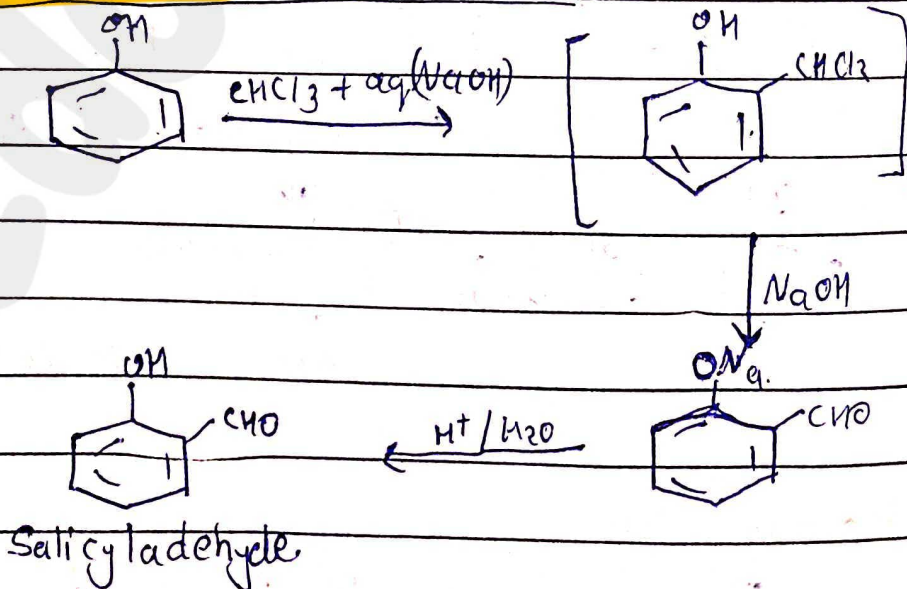 OH
CHCl3 + aq(NaOH)
OH
CHCl2
NaOH
ONa.
CHO
H+/H2O
OH
CHO
Salicyladehyde